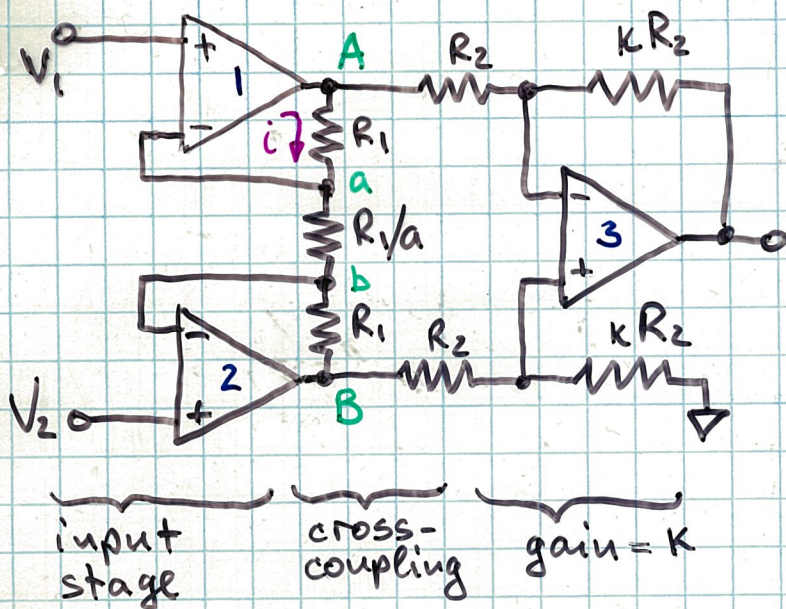 V₁
+
−
1
A
i
R₁
a
R₁/a
b
R₁
B
V₂
−
+
2
R₂
κR₂
−
+
3
R₂
κR₂
input
stage
cross-
coupling
gain = κ